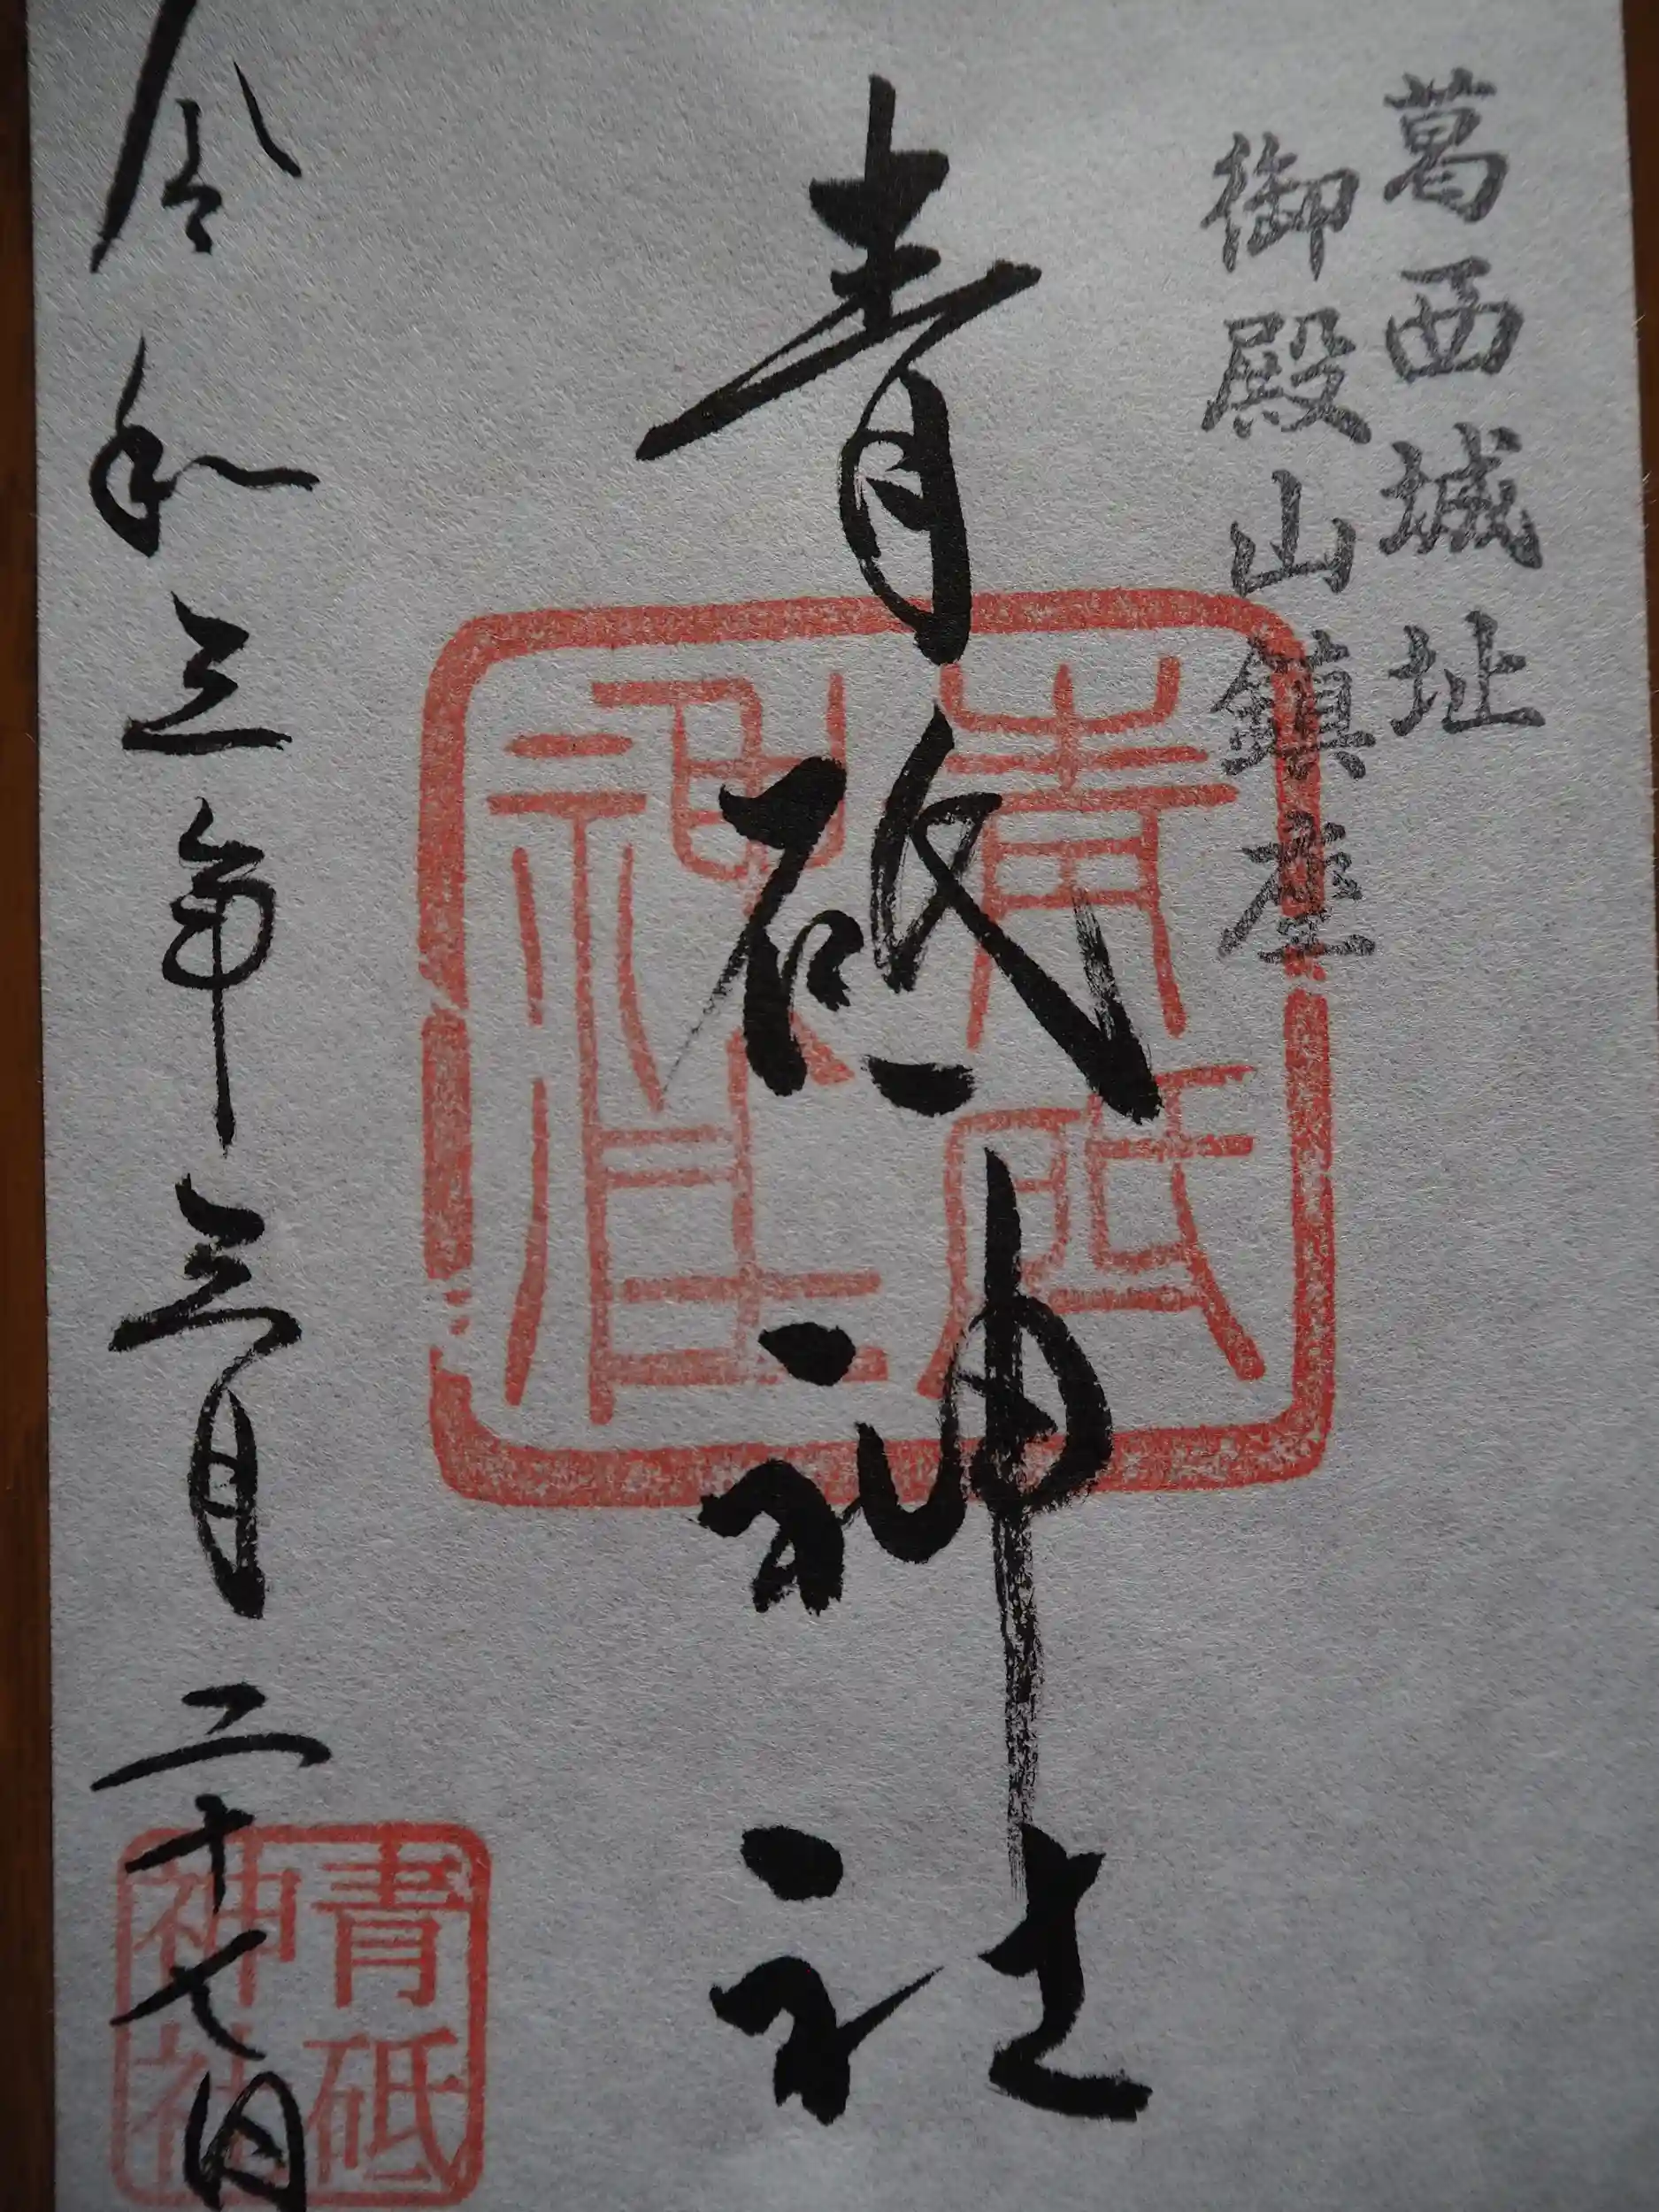 葛西城址
御殿山鎮座
青砥神社
青砥
神社
令和三年三月二十七日
青砥
神社